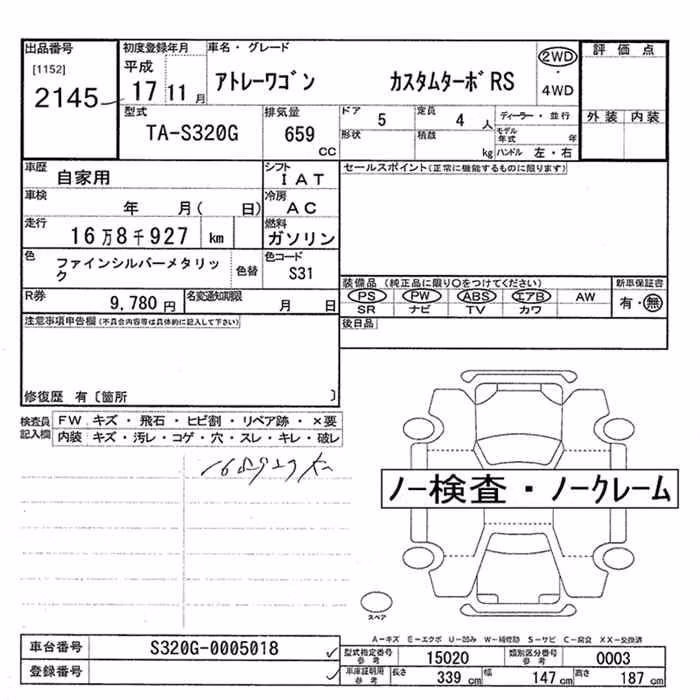 出品番号 初度登録年月 車名・グレード 評価点
[1152] 平成 2WD
2145 17 11月 アトレーワゴン カスタムターボRS ・
4WD
型式 排気量 ドア 5 定員 4人 ディーラー・並行 外装 内装
TA-S320G 659 cc 形状 積載 kg モデル年式 年
ハンドル 左・右
車歴 自家用 シフト IAT セールスポイント(正常に機能するものに限ります)
車検 年 月( 日) 冷房 AC
走行 16万8千927 km 燃料 ガソリン
色 ファインシルバーメタリック 色替 色コード S31
装備品 (純正品に限り○をつけてください) 新車保証書
PS PW ABS エアB AW 有・無
SR ナビ TV カワ
R券 9,780円 名変通知期限 月 日
後日品
注意事項申告欄(不具合内容等は具体的に記入して下さい)
修復歴 有〔箇所 〕
検査員記入欄 FW キズ・飛石・ヒビ割・リペア跡・×要
内装 キズ・汚レ・コゲ・穴・スレ・キレ・破レ
168927km
ノー検査・ノークレーム
スペア
A-キズ E-エクボ U-凹み W-補修跡 S-サビ C-腐食 XX-交換済
車台番号 S320G-0005018
登録番号
型式指定番号 参考 15020 類別区分番号 参考 0003
車庫証明用 参考 長さ 339 cm 幅 147 cm 高さ 187 cm